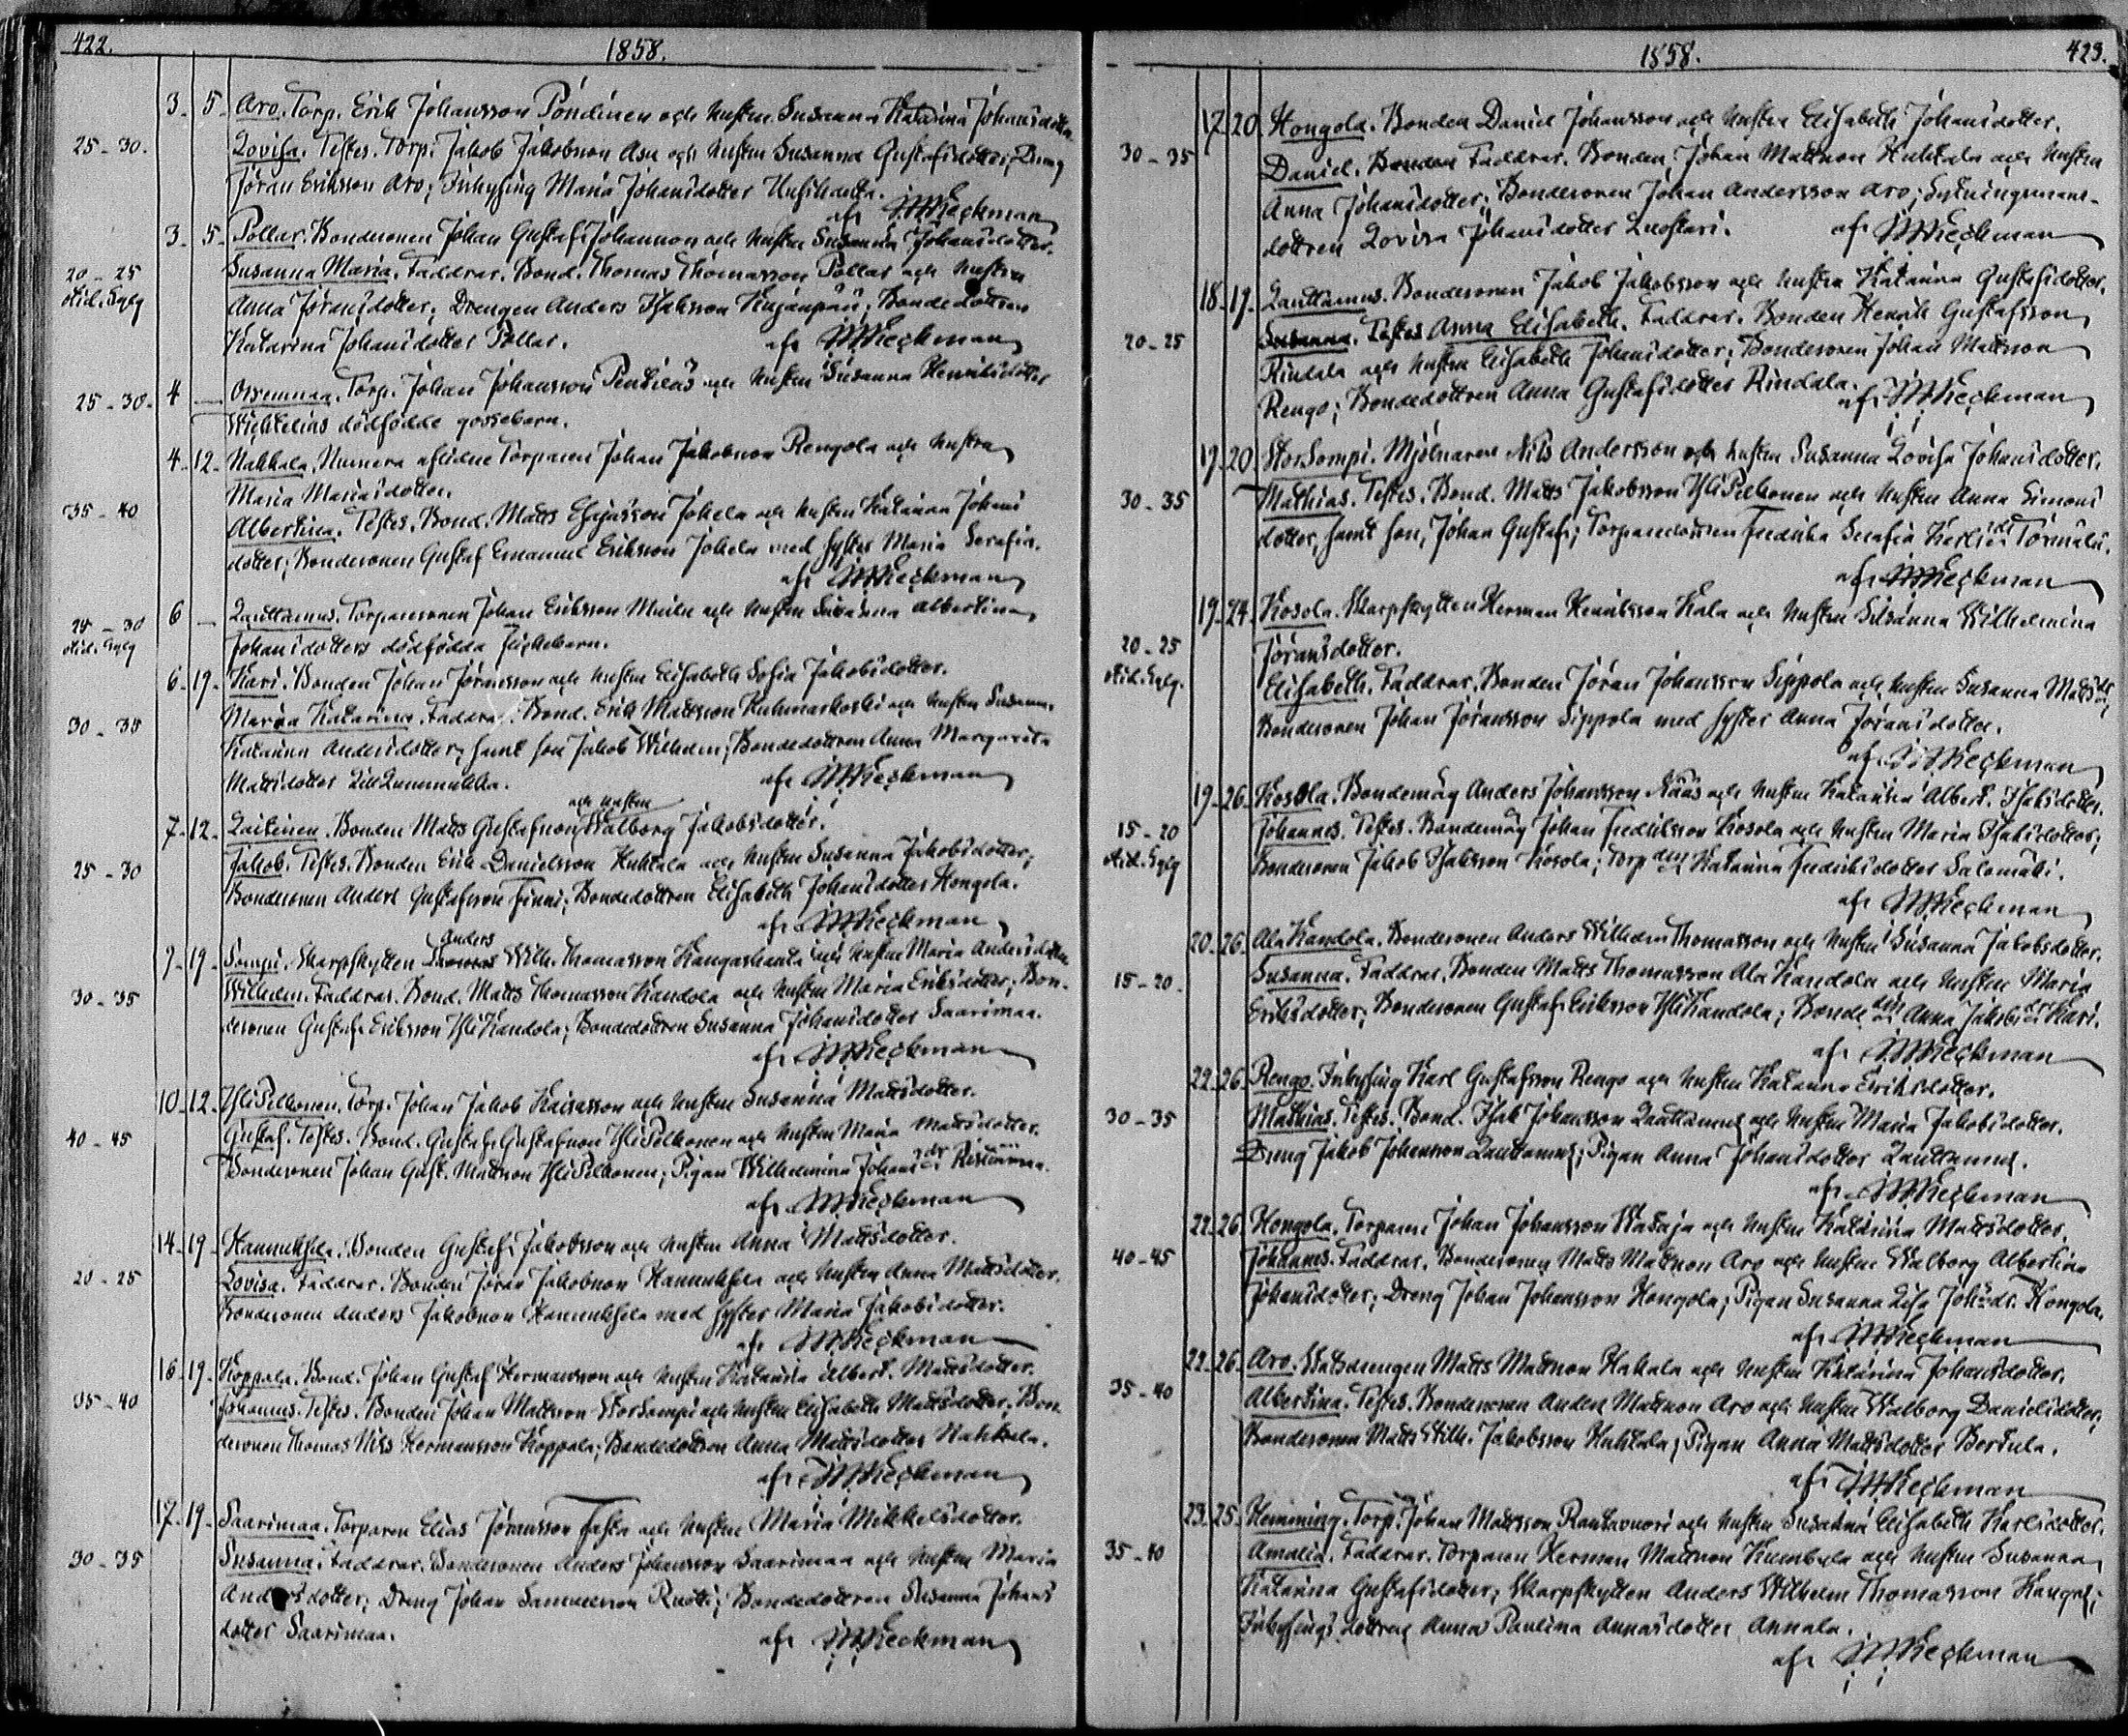 422.
1858.
3. 5. Aro. Torp. Erik Johansson Pöndinen och hustru Susanna Katarina Johansdotter.
25-30. Lovisa. Testes. Torp. Jakob Jakobsson Asu och hustru Susanna Gustafsdotter; Dreng
Jöran Eriksson Aro; Inhysing Maria Johansdotter
af MHeckman
3. 5. Pollar. Bondesonen Johan Gustaf Johansson och hustru Susanna Johansdotter.
20-25 Susanna Maria. Faddrar. Bond. Thomas Thomasson Pollar och hustru
Anna Jöransdotter; Drengen Anders Isaksson ; Bondedottren
Katarina Johansdotter Pollar. af MHeckman
25-30. 4 — Torp. Johan Johansson och hustru Susanna Henriksdotter
dödfödde gossebarn.
4. 12. Nahkala, Numera aflidne Torparen Johan Jakobsson Rengola och hustru
Maria Mariasdotter.
35-40 Albertina. Testes. Bond. Matts Johela och hustru Katarina Johans
dotter; Bondesonen Gustaf Emanuel Eriksson Johela med syster Maria Serafia.
af MHeckman
25-30 6 — Lauttamus. Torparesonen Johan Eriksson och hustru Susanna Albertina
Johansdotters dödfödda flickebarn.
6. 19. Kari. Bonden Johan Jöransson och hustru Elisabeth Sofia Jakobsdotter.
30-35 Maria Katarina. Faddrar. Bond. Erik Mattsson och hustru Susanna
Katarina Andersdotter, samt son Jakob Wilhelm; Bondedottren Anna Margareta
Mattsdotter af MHeckman
och hustru
7. 12. Laitinen. Bonden Matts Gustafsson Walborg Jakobsdotter.
25-30 Jakob. Testes. Bonden Erik Danielsson Huhtala och hustru Susanna Jakobsdotter;
Bondesonen Anders Gustafsson Finni; Bondedottren Elisabeth Johansdotter Hongola.
af MHeckman
Anders
9. 19. Sompi. Skarpskytten Thomas Wilh. Thomasson och hustru Maria Andersdotter.
30-35 Wilhelm. Faddrar. Bond. Matts Thomasson Kandola och hustru Maria Eriksdotter; Bon-
desonen Gustaf Eriksson YliKandola; Bondedottren Susanna Johansdotter Saarimaa.
af MHeckman
10. 12. YliPelkonen. Torp. Johan Jakob och hustru Susanna Mattsdotter.
40-45 Gustaf. Testes. Bond. Gustaf Gustafsson YliPelkonen och hustru Maria Mattsdotter.
Bondesonen Johan Gust. Mattsson YliPelkonen; Pigan Wilhelmina Johans dr
af MHeckman
14. 19. Hannuksela. Bonden Gustaf Jakobsson och hustru Anna Mattsdotter.
20-25 Lovisa. Faddrar. Bonden Jöran Jakobsson Hannuksela och hustru Anna Mattsdotter.
Bondesonen Anders Jakobsson Hannuksela med syster Maria Jakobsdotter.
af MHeckman
16. 19. Koppala. Bond. Johan Gustaf Hermansson och hustru Katarina Albert. Mattsdotter.
35-40 Johannes. Testes. Bonden Johan Mattsson StorSompi och hustru Elisabeth Mattsdotter, Bon-
desonen Thomas Nils Hermansson Koppala; Bondedottren Anna Mattsdotter Nahkala.
af MHeckman
17. 19. Saarimaa. Torparen Elias Jöransson och hustru Maria Mikkelsdotter.
30-35 Susanna. Faddrar. Bondesonen Anders Johansson Saarimaa och hustru Maria
Andersdotter; Dreng Johan Samuelsson ; Bondedottren Susanna Johans
dotter Saarimaa. af MHeckman
1858.
423.
17. 20. Hongola. Bonden Daniel Johansson och hustru Elisabeth Johansdotter.
30-35 Daniel. Bonden Faddrar. Bonden Johan Mattsson Huhtala och hustru
Anna Johansdotter; Bondesonen Johan Andersson Aro; Sytningsmans-
dottren Lovisa Johansdotter Luostari. af MHeckman
18. 19. Lauttamus. Bondesonen Jakob Jakobsson och hustru Katarina Gustafsdotter.
20-25 Susanna. Testes Anna Elisabeth. Faddrar. Bonden Henrik Gustafsson
Rindala och hustru Elisabeth Johansdotter; Bondesonen Johan Mattsson
Rengo; Bondedottren Anna Gustafsdotter Rindala.
af MHeckman
19. 20 StorSompi. Mjölnaren Nils Andersson och hustru Susanna Lovisa Johansdotter.
30-35 Mathias. Testes. Bond. Matts Jakobsson YliPelkonen och hustru Anna Simons
dotter, samt son, Johan Gustaf; Torparedottren Fredrika Serafia Karls dr Törmälä.
af MHeckman
19. 24. Kosola. Skarpskytten Herman Henriksson Kala och hustru Susanna Wilhelmina
20-25 Jöransdotter.
Elisabeth. Faddrar. Bonden Jöran Johansson Sippola och hustru Susanna Matts dr;
Bondesonen Johan Jöransson Sippola med syster Anna Jöransdotter.
af MHeckman
19. 26. Kosola. Bondemåg Anders Johansson Nääs och hustru Katarina Albert. Isaksdotter.
15-20 Johannes. Testes. Bondemåg Johan Fredriksson Kosola och hustru Maria Isaksdotter;
Bondesonen Jakob Isaksson Kosola; Torp Katarina Fredriksdotter Salomäki.
af MHeckman
20. 26. AlaKandola. Bondesonen Anders Wilhelm Thomasson och hustru Susanna Jakobsdotter.
15-20. Susanna. Faddrar. Bonden Matts Thomasson Ala Kandola och hustru Maria
Eriksdotter; Bondesonen Gustaf Eriksson YliKandola; Bonde Anna Jakobs dr Kari.
af MHeckman
22. 26. Rengo. Inhysing Karl Gustafsson Rengo och hustru Katarina Eriksdotter.
30-35 Mathias. Testes. Bond. Isak Johansson Lauttamus och hustru Maria Jakobsdotter.
Dreng Jakob Johansson Lauttamus; Pigan Anna Johansdotter Lauttamus.
af MHeckman
22. 26. Hongola. Torparen Johan Johansson Kataja och hustru Katarina Mattsdotter.
40-45 Johannes. Faddrar. Bondesonen Matts Mattsson Aro och hustru Walborg Albertina
Johansdotter; Dreng Johan Johansson Hongola; Pigan Susanna Lisa Joh:dr. Hongola.
af MHeckman
22. 26. Aro. Matts Mattsson Hakala och hustru Katarina Johansdotter.
35-40 Albertina. Testes. Bondesonen Anders Mattsson Aro och hustru Walborg Danielsdotter;
Bondesonen Matts Wilh. Jakobsson Huhtala; Pigan Anna Mattsdotter Bertula.
af MHeckman
23. 25. Hemming. Torp. Johan Mattsson Rantavuori och hustru Susanna Elisabeth Karlsdotter.
35-40 Amalia. Faddrar. Torparen Herman Mattsson och hustru Susanna
Katarina Gustafsdotter; Skarpskytten Anders Wilhelm Thomasson
Inhysings dottren Anna Paulina Annasdotter Annala.
af MHeckman